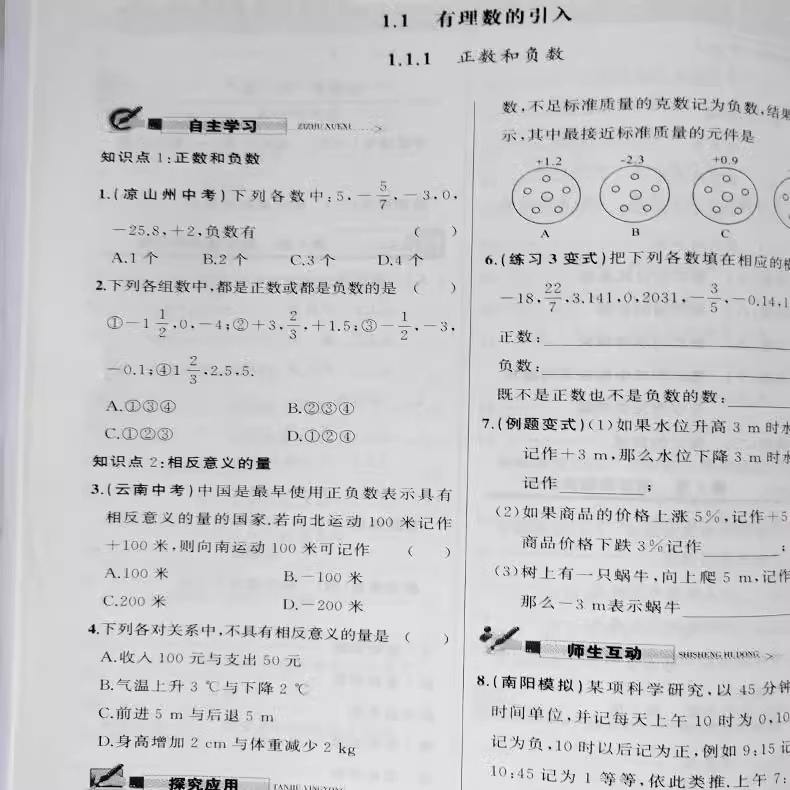 1.1 有理数的引入
1.1.1 正数和负数
自主学习 ZIZHU XUEXI
知识点1:正数和负数
1.(凉山州中考)下列各数中:5,-5/7,-3,0,
-25.8,+2,负数有 ( )
A.1个 B.2个 C.3个 D.4个
2.下列各组数中,都是正数或都是负数的是 ( )
①-1 1/2,0,-4;②+3,2/3,+1.5;③-1/2,-3,
-0.1;④1 2/3,2.5,5.
A.①③④ B.②③④
C.①②③ D.①②④
知识点2:相反意义的量
3.(云南中考)中国是最早使用正负数表示具有
相反意义的量的国家.若向北运动100米记作
+100米,则向南运动100米可记作 ( )
A.100米 B.-100米
C.200米 D.-200米
4.下列各对关系中,不具有相反意义的量是 ( )
A.收入100元与支出50元
B.气温上升3 ℃与下降2 ℃
C.前进5 m与后退5 m
D.身高增加2 cm与体重减少2 kg
探究应用 TANJIU YINGYONG
数,不足标准质量的克数记为负数,结果
示,其中最接近标准质量的元件是
+1.2 -2.3 +0.9
A B C
6.(练习3变式)把下列各数填在相应的
-18,22/7,3.141,0,2031,-3/5,-0.14,1
正数:
负数:
既不是正数也不是负数的数:
7.(例题变式)(1)如果水位升高3 m时水
记作+3 m,那么水位下降3 m时水
记作 ;
(2)如果商品的价格上涨5%,记作+5
商品价格下跌3%记作 ;
(3)树上有一只蜗牛,向上爬5 m,记作
那么-3 m表示蜗牛
师生互动 SHISHENG HUDONG
8.(南阳模拟)某项科学研究,以45分钟
时间单位,并记每天上午10时为0,10
记为负,10时以后记为正,例如9:15记
10:45记为1等等,依此类推,上午7: